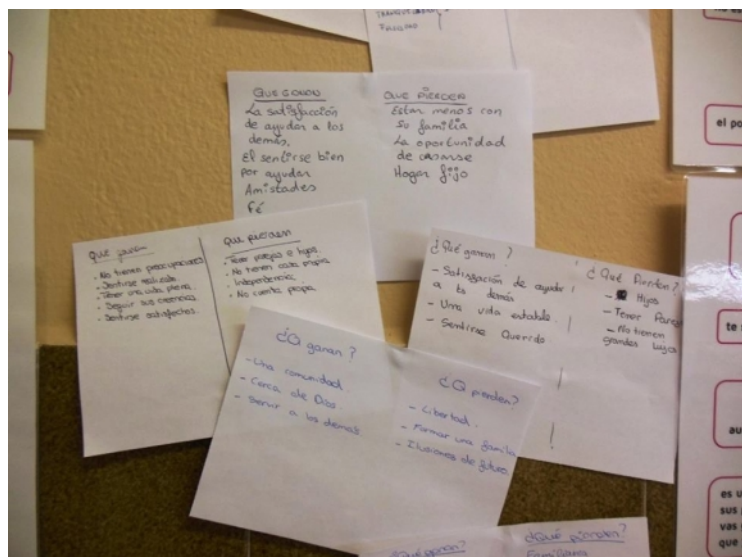 QUE GANAN
La satisfacción
de ayudar a los
demás.
El sentirse bien
por ayudar
Amistades
Fé
QUE PIERDEN
Estar menos con
su familia
La oportunidad
de casarse
Hogar fijo
que ganan
- No tienen preocupaciones
- Sentirse realizado
- Tener una vida plena
- Seguir sus creencias
- Sentirse satisfechos.
que pierden
- Tener parejas e hijos.
- No tienen casa propia
- Independencia
- No cuenta propia.
¿Qué ganan?
- Satisfacción de ayudar
a los demás
- Una vida estable.
- Sentirse Querido
¿Qué Pierden?
- Hijos
- Tener Pareja
- No tienen
grandes lujos
¿Q ganan?
- Una comunidad
- Cerca de Dios.
- Servir a los demás
¿Q pierden?
- Libertad.
- Formar una familia
- Ilusiones de futuro
¿Qué ganan?
¿Qué pierden?
el po
te
au
es u
sus
vas
que